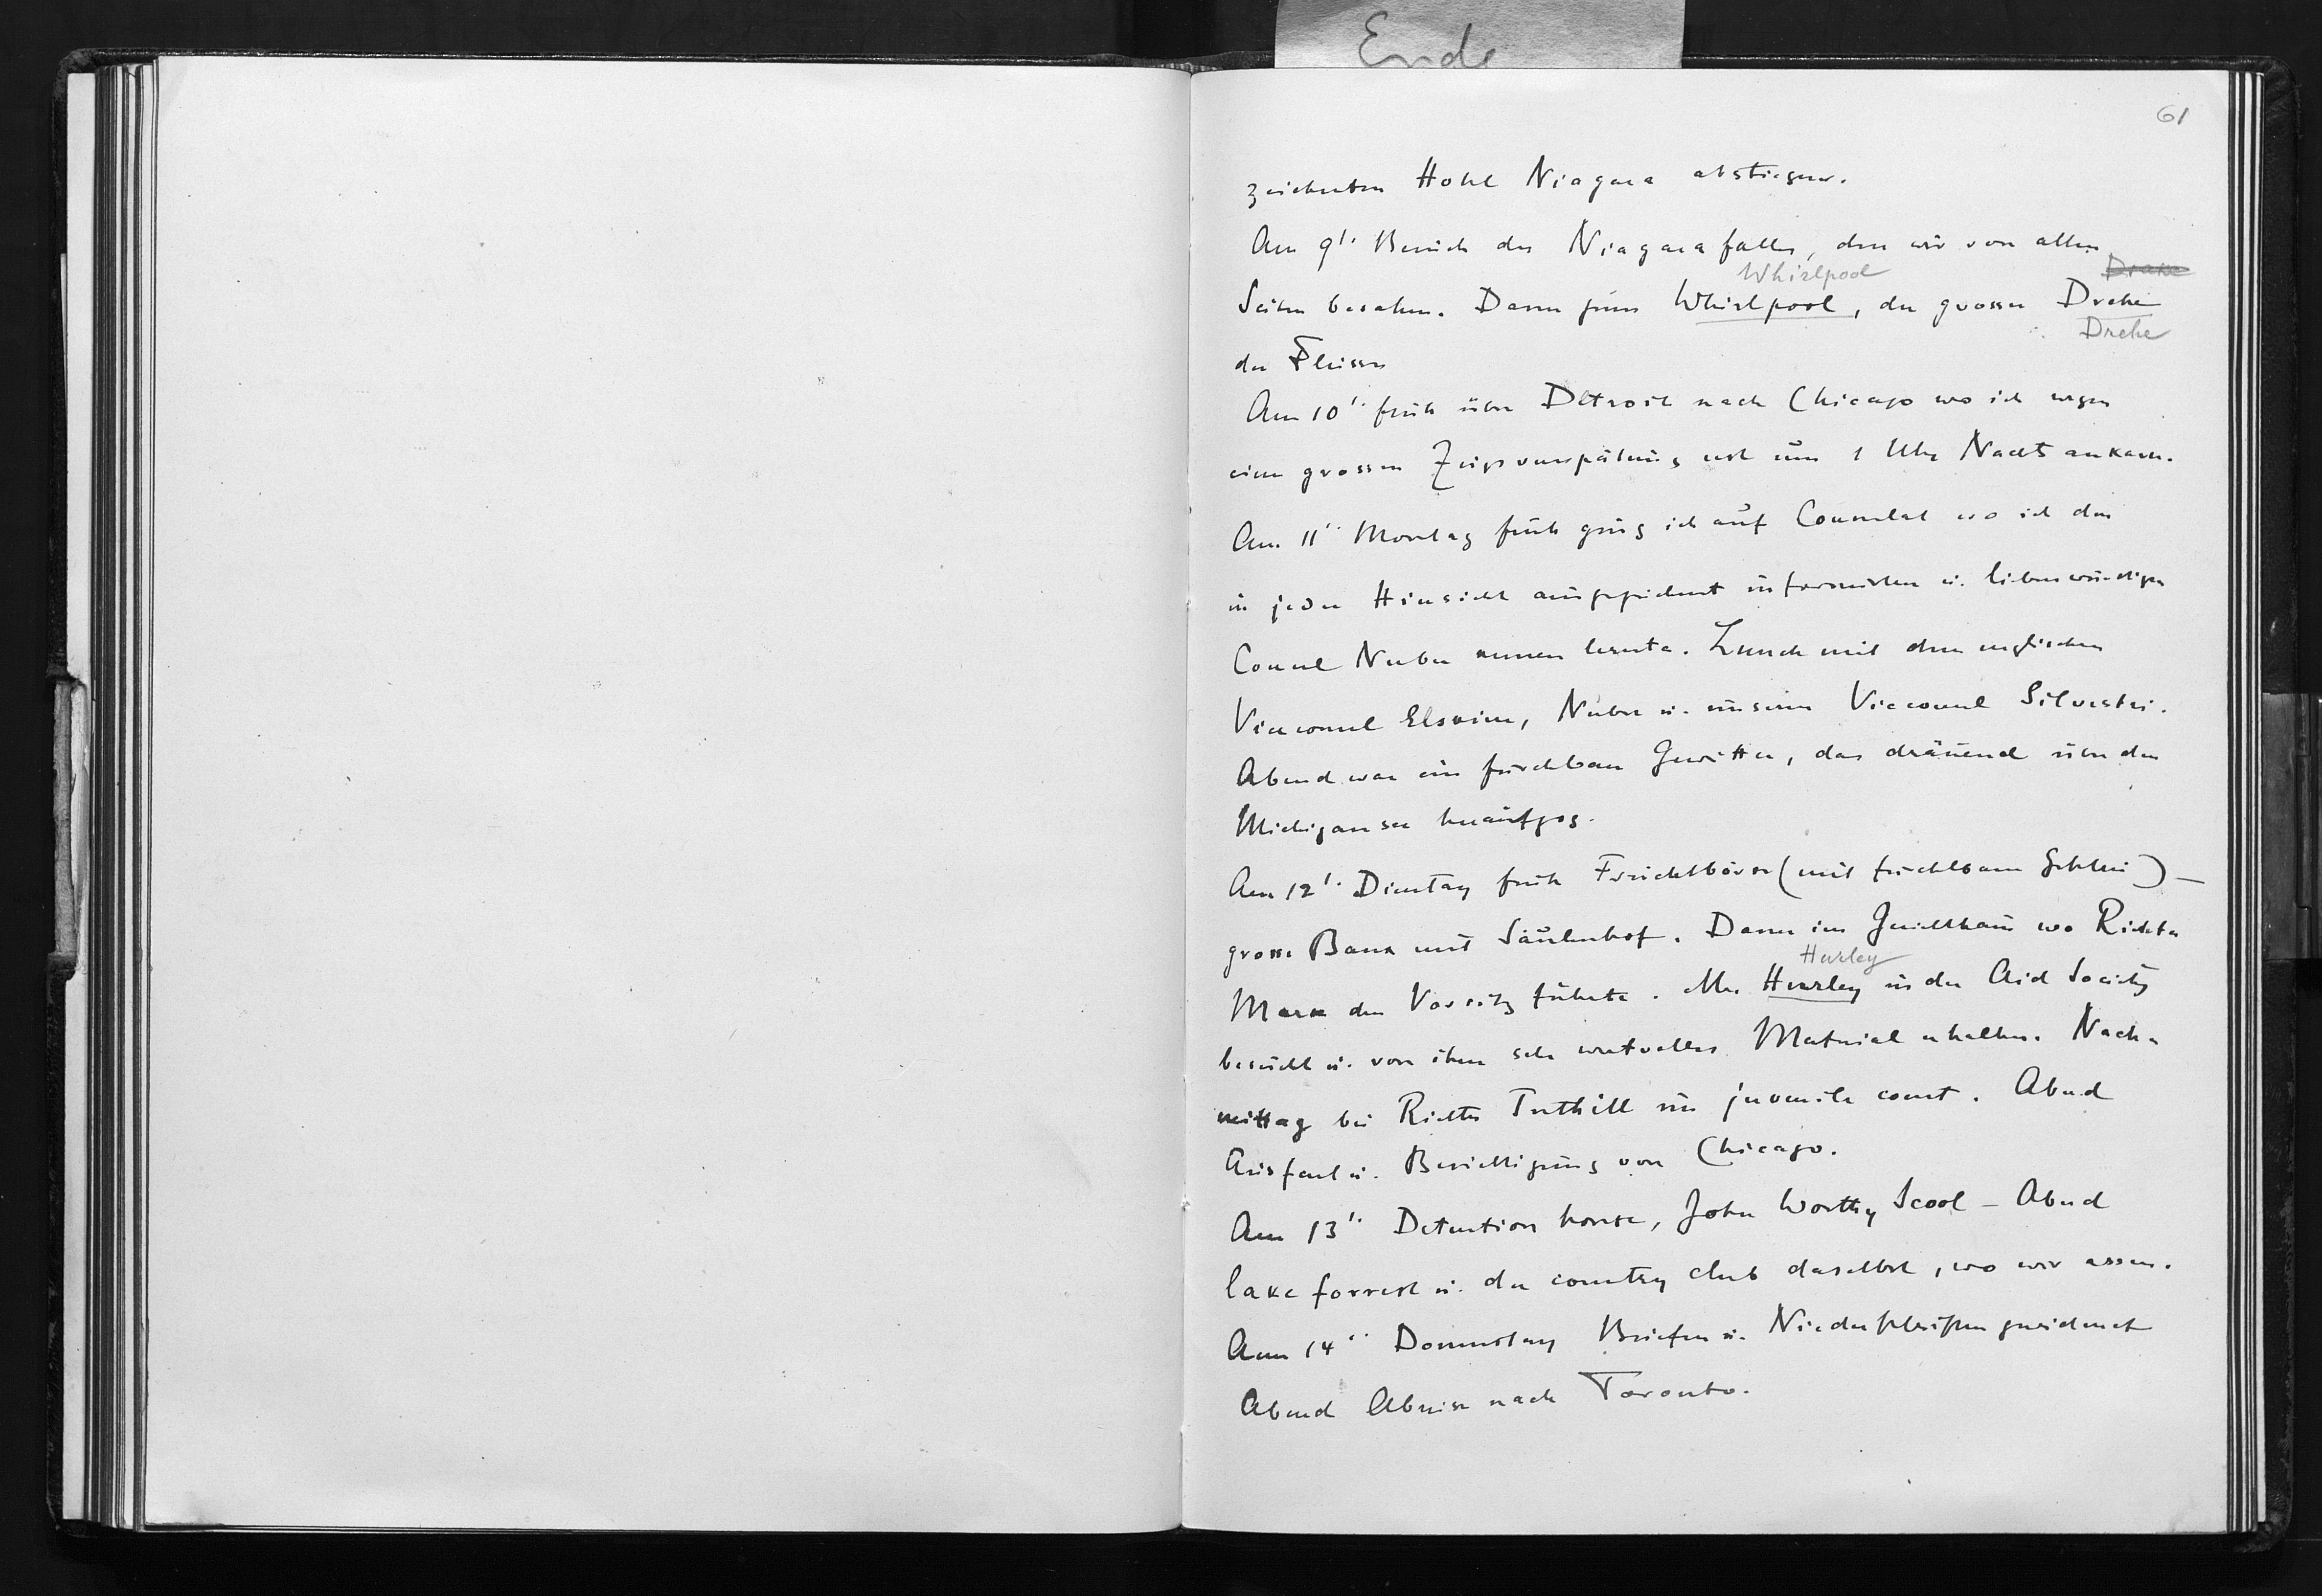 Ende
61
zeichneten Hotel Niagara abstiegen.
Am 9t. Besuch des Niagarafalles, den wir von allen
Whirlpool Drake
Seiten besahen. Dann zum Whirlpool, der grossen Drehe
Drehe
des Flusses
Am 10t. früh über Detroit nach Chicago wo ich wegen
einer grossen Zugsverspätung erst um 1 Uhr Nachts ankam.
Am 11t. Montag früh ging ich auf Consulat wo ich den
in jeder Hinsicht ausgezeichnet informirten u. liebenswürdigen
Consul Nuber kennen lernte. Lunch mit dem englischen
Viceconsul Erskine, Nuber u. unserm Viceconsul Silvestri.
Abend war ein furchtbares Gewitter, das dräuend über den
Michigansee heraufzog.
Am 12t. Dienstag früh Fruchtbörse (mit furchtbarem Gebrüll) –
grosse Bank mit Säulenhof. Dann im Gerichthaus wo Richter
Hurley
Mack den Vorsitz führte. Mr. Hurley in der Aid Society
besucht u. von ihm sehr wertvolles Material erhalten. Nach-
mittag bei Richter Tuthill im juvenile court. Abend
Ausfart u. Besichtigung von Chicago.
Am 13t. Detention house, John Worthy Scool – Abend
lake forrest u. der country club daselbst, wo wir assen.
Am 14t. Donnerstag Briefen u. Niederschriften gewidmet
Abend Abreise nach Toronto.